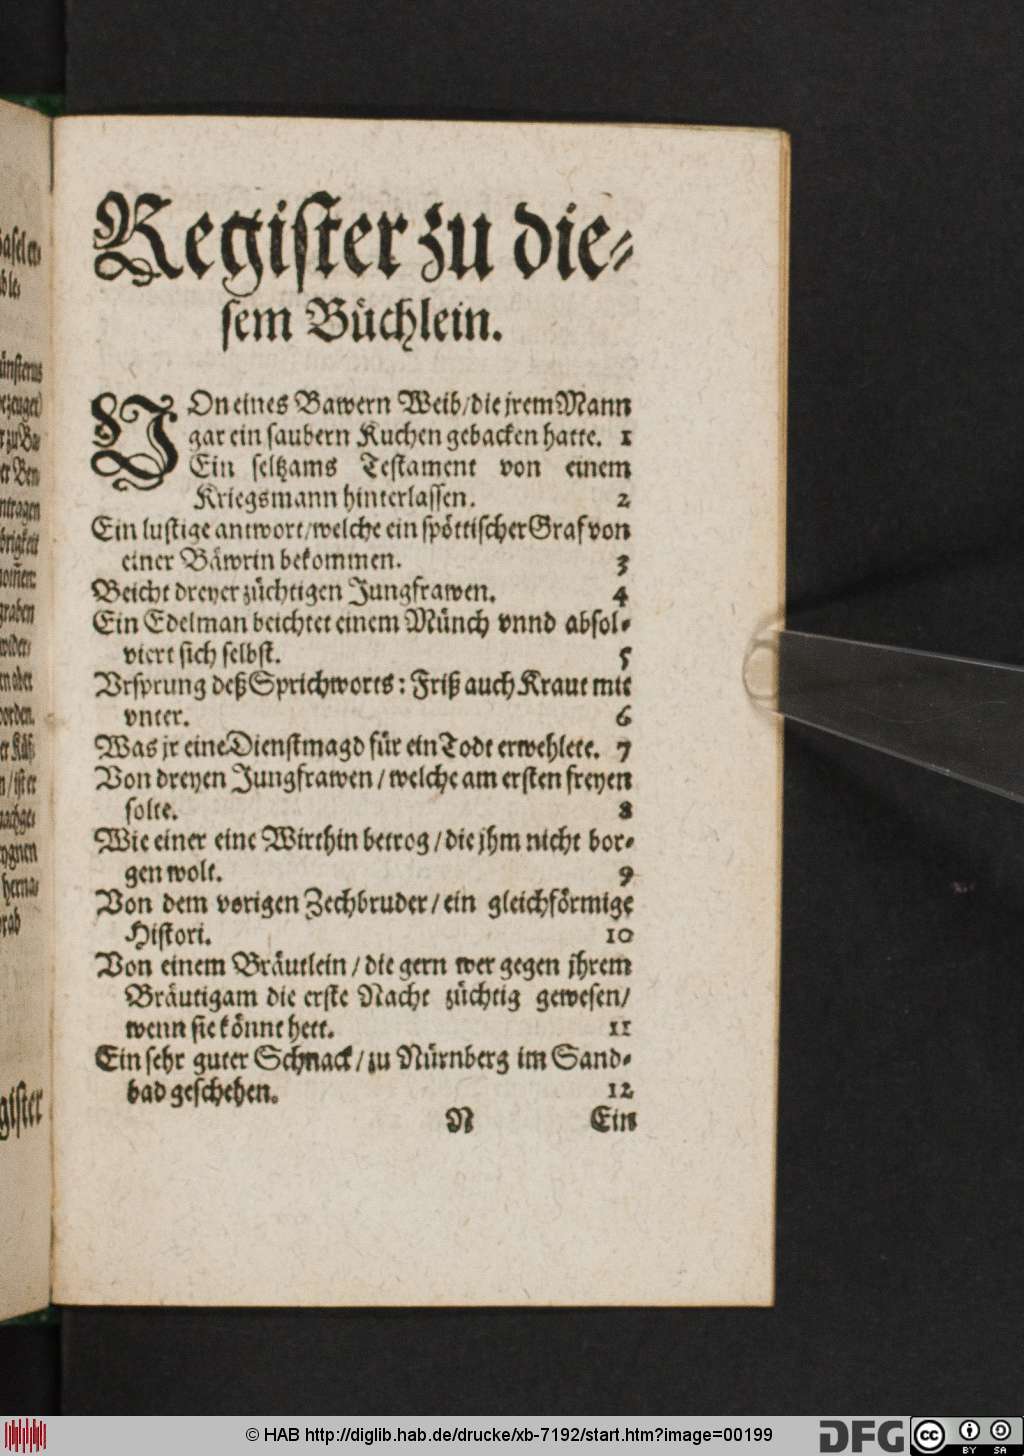 Register zu die-
sem Büchlein.
VOn eines Bawern Weib/die jrem Mann
gar ein saubern Kuchen gebacken hatte. 1
Ein seltzams Testament von einem
Kriegsmann hinterlassen. 2
Ein lustige antwort/welche ein spöttischer Graf von
einer Bäwrin bekommen. 3
Beicht dreyer züchtigen Jungfrawen. 4
Ein Edelman beichtet einem Münch vnnd absol-
viert sich selbst. 5
Vrsprung deß Sprichworts: Friß auch Kraut mit
vnter. 6
Was jr eine Dienstmagd für ein Todt erwehlete. 7
Von dreyen Jungfrawen/welche am ersten freyen
solte. 8
Wie einer eine Wirthin betrog/die jhm nicht bor-
gen wolt. 9
Von dem vorigen Zechbruder/ein gleichförmige
Histori. 10
Von einem Bräutlein/die gern wer gegen jhrem
Bräutigam die erste Nacht züchtig gewesen/
wenn sie könnt hett. 11
Ein sehr guter Schnack/zu Nürnberg im Sand-
bad geschehen. 12
N Ein
© HAB http://diglib.hab.de/drucke/xb-7192/start.htm?image=00199
DFG
cc
BY SA